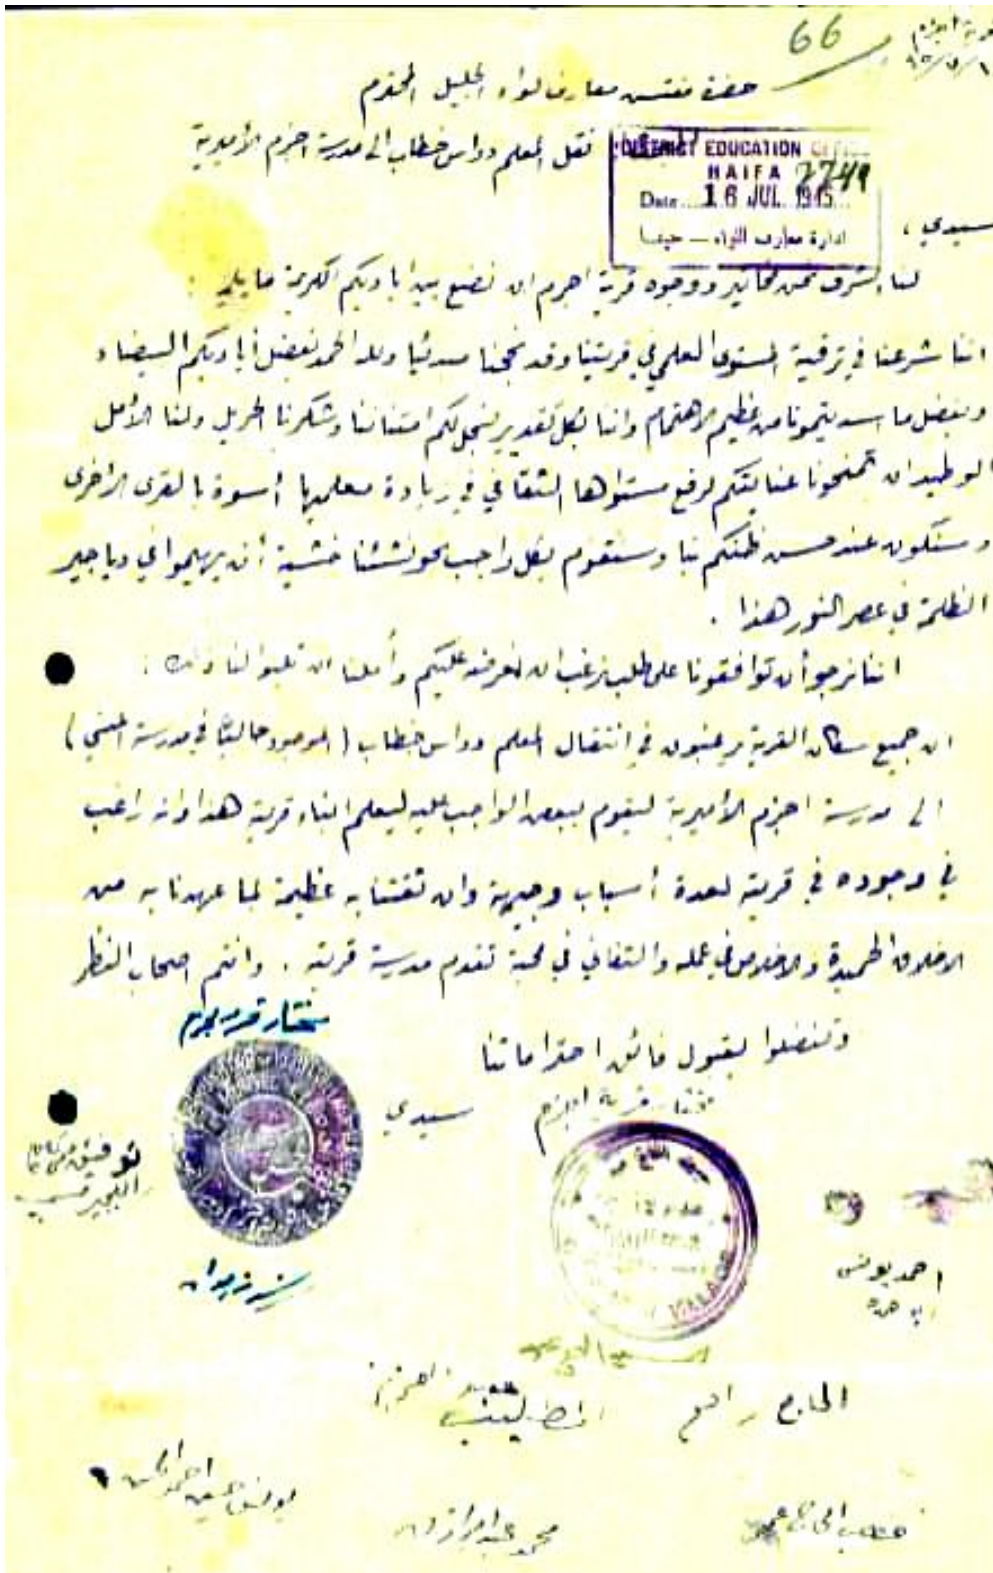 66
قرية اجزم
حضرة مفتش معارف لواء الجليل المحترم
نقل المعلم دواس خطاب الى مدرسة اجزم الأميرية
DISTRICT EDUCATION OFFICE
HAIFA 2749
Date 16 JUL 1945
ادارة معارف اللواء — حيفا
سيدي ،
لنا الشرف نحن مخاتير ووجوه قرية اجزم ان نضع بين اياديكم الكريمة ما يلي :
اننا شرعنا في ترقية المستوى العلمي في قريتنا وقد نجحنا مبدئيا ولله الحمد بفضل أياديكم البيضاء
وبفضل ما اسديتمونا من عظيم الاهتمام واننا بكل تقدير نسجل لكم امتناننا وشكرنا الجزيل ولنا الأمل
الوطيد ان تمنحونا عنايتكم لرفع مستواها الثقافي في زيادة معلميها أسوة بالقرى الأخرى
وسنكون عند حسن ظنكم بنا وسنقوم بكل واجب نحو نشئنا خشية أن يهيموا في دياجير
الظلمة في عصر النور هذا .
اننا نرجو أن توافقونا على طلب نرغب ان نعرضه عليكم وأملنا ان تلبوا لنا ذلك :
ان جميع سكان القرية يرغبون في انتقال المعلم دواس خطاب ( الموجود حاليا في مدرسة )
الى مدرسة اجزم الأميرية ليقوم ببعض الواجب عليه ليعلم ابناء قريته هذا وانه راغب
في وجوده في قريته لعدة أسباب وجيهة وان ثقتنا به عظيمة لما عهدنا به من
الاخلاق الحميدة والاخلاص في عمله والتفاني في محبة تقدم مدرسة قريته . وانتم اصحاب النظر
وتفضلوا بقبول فائق احتراماتنا
سيدي
مختار قرية اجزم
مختار قرية اجزم
توفيق
احمد يونس
VILLAGE
الحاج راجح
يونس حسين احمد
محمد عبد الرازق
الحاج